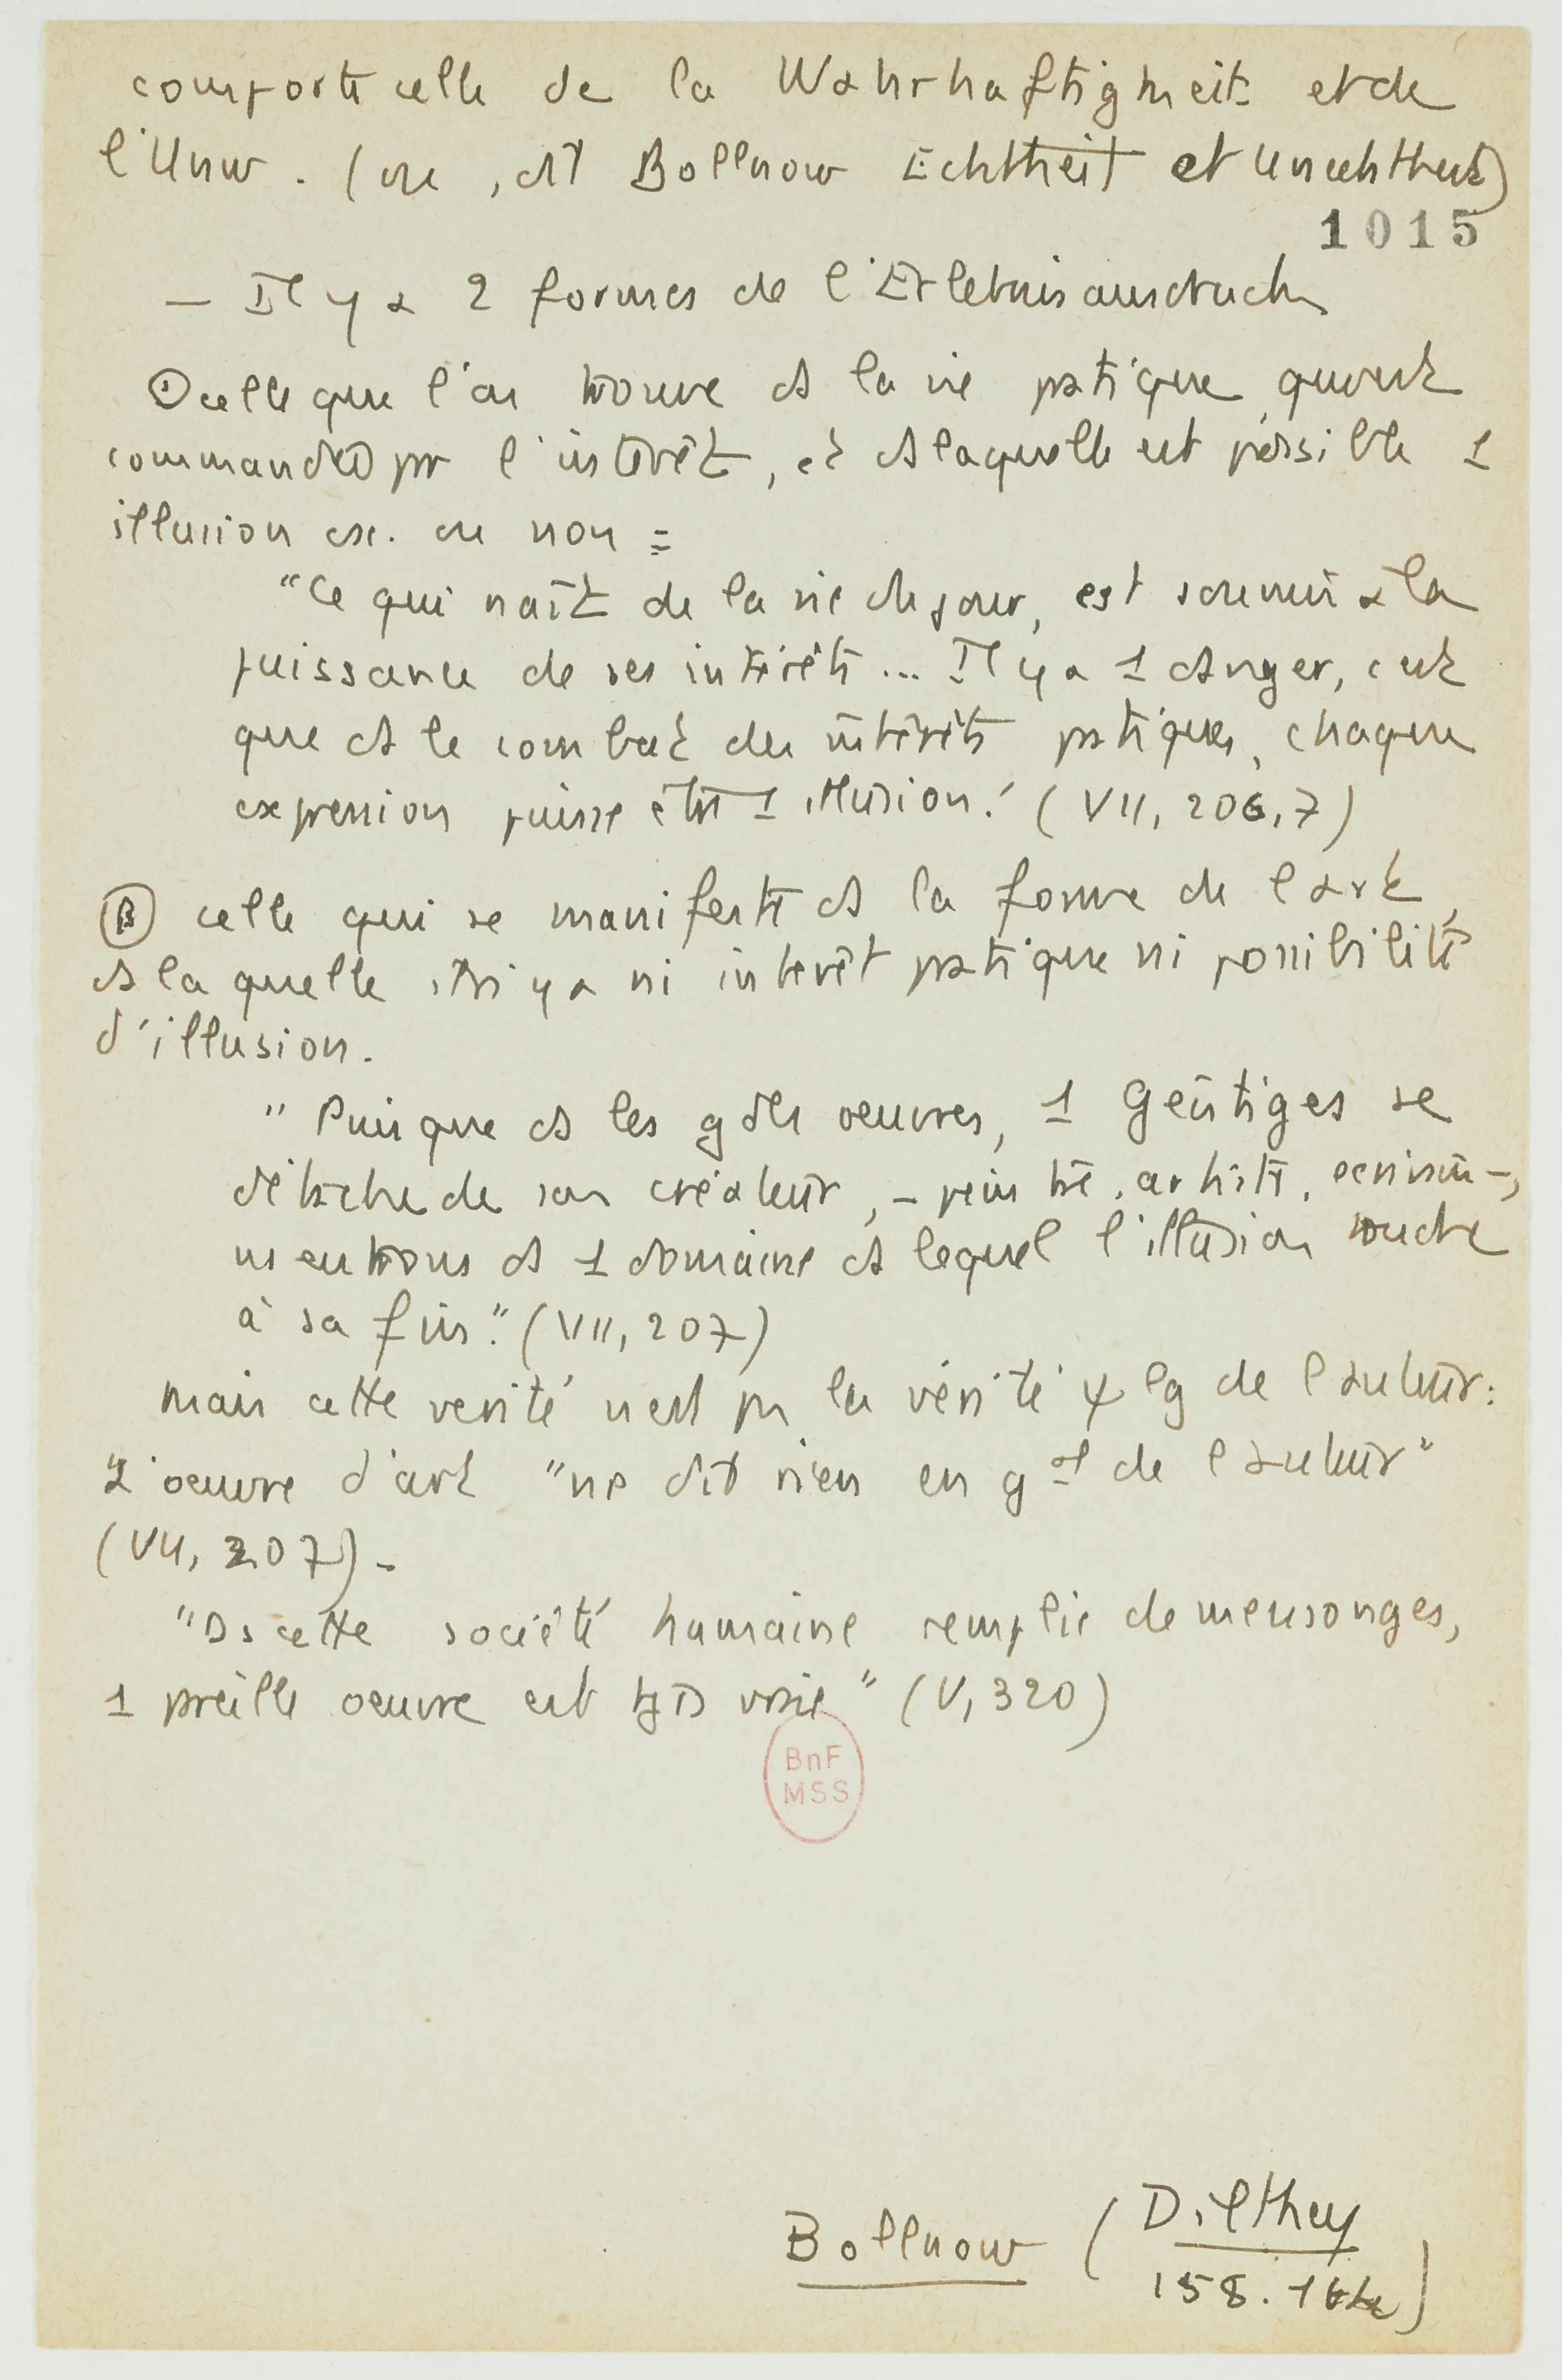 comporte celle de la Wahrhaftigkeit et de
l'Unw. (ou, dit Bollnow Echtheit et Unechtheit)
1015
— Il y a 2 formes de l'Erlebnisausdruck
celle que l'on trouve ds la vie patique, qui est
commandée pr l'intérêt, et ds laquelle est possible 1
illusion ou non =
"Ce qui naît de la vie du jour, est soumis à la
puissance de ses intérêts... Il y a 1 danger, c'est
que ds le combat des intérêts patiques, chaque
expression puisse être 1 illusion." (VII, 206,7)
β celle qui se manifeste ds la forme de l'art,
ds laquelle il n'y a ni intérêt patique ni possibilité
d'illusion.
"Puisque ds les gdes oeuvres, 1 Geistiges se
détache de son créateur, – peintre, artiste, écrivain –,
ns entrons ds 1 domaine ds lequel l'illusion touche
à sa fin." (VII, 207)
Mais cette vérité n'est pas la vérité ψlg de l'auteur:
L'oeuvre d'art "ne dit rien en gal de l'auteur"
(VII, 207) –
"Ds cette société humaine remplie de mensonges,
1 preille oeuvre est tjs vraie" (V, 320)
BnF
MSS
Bollnow (Dilthey
158.164)